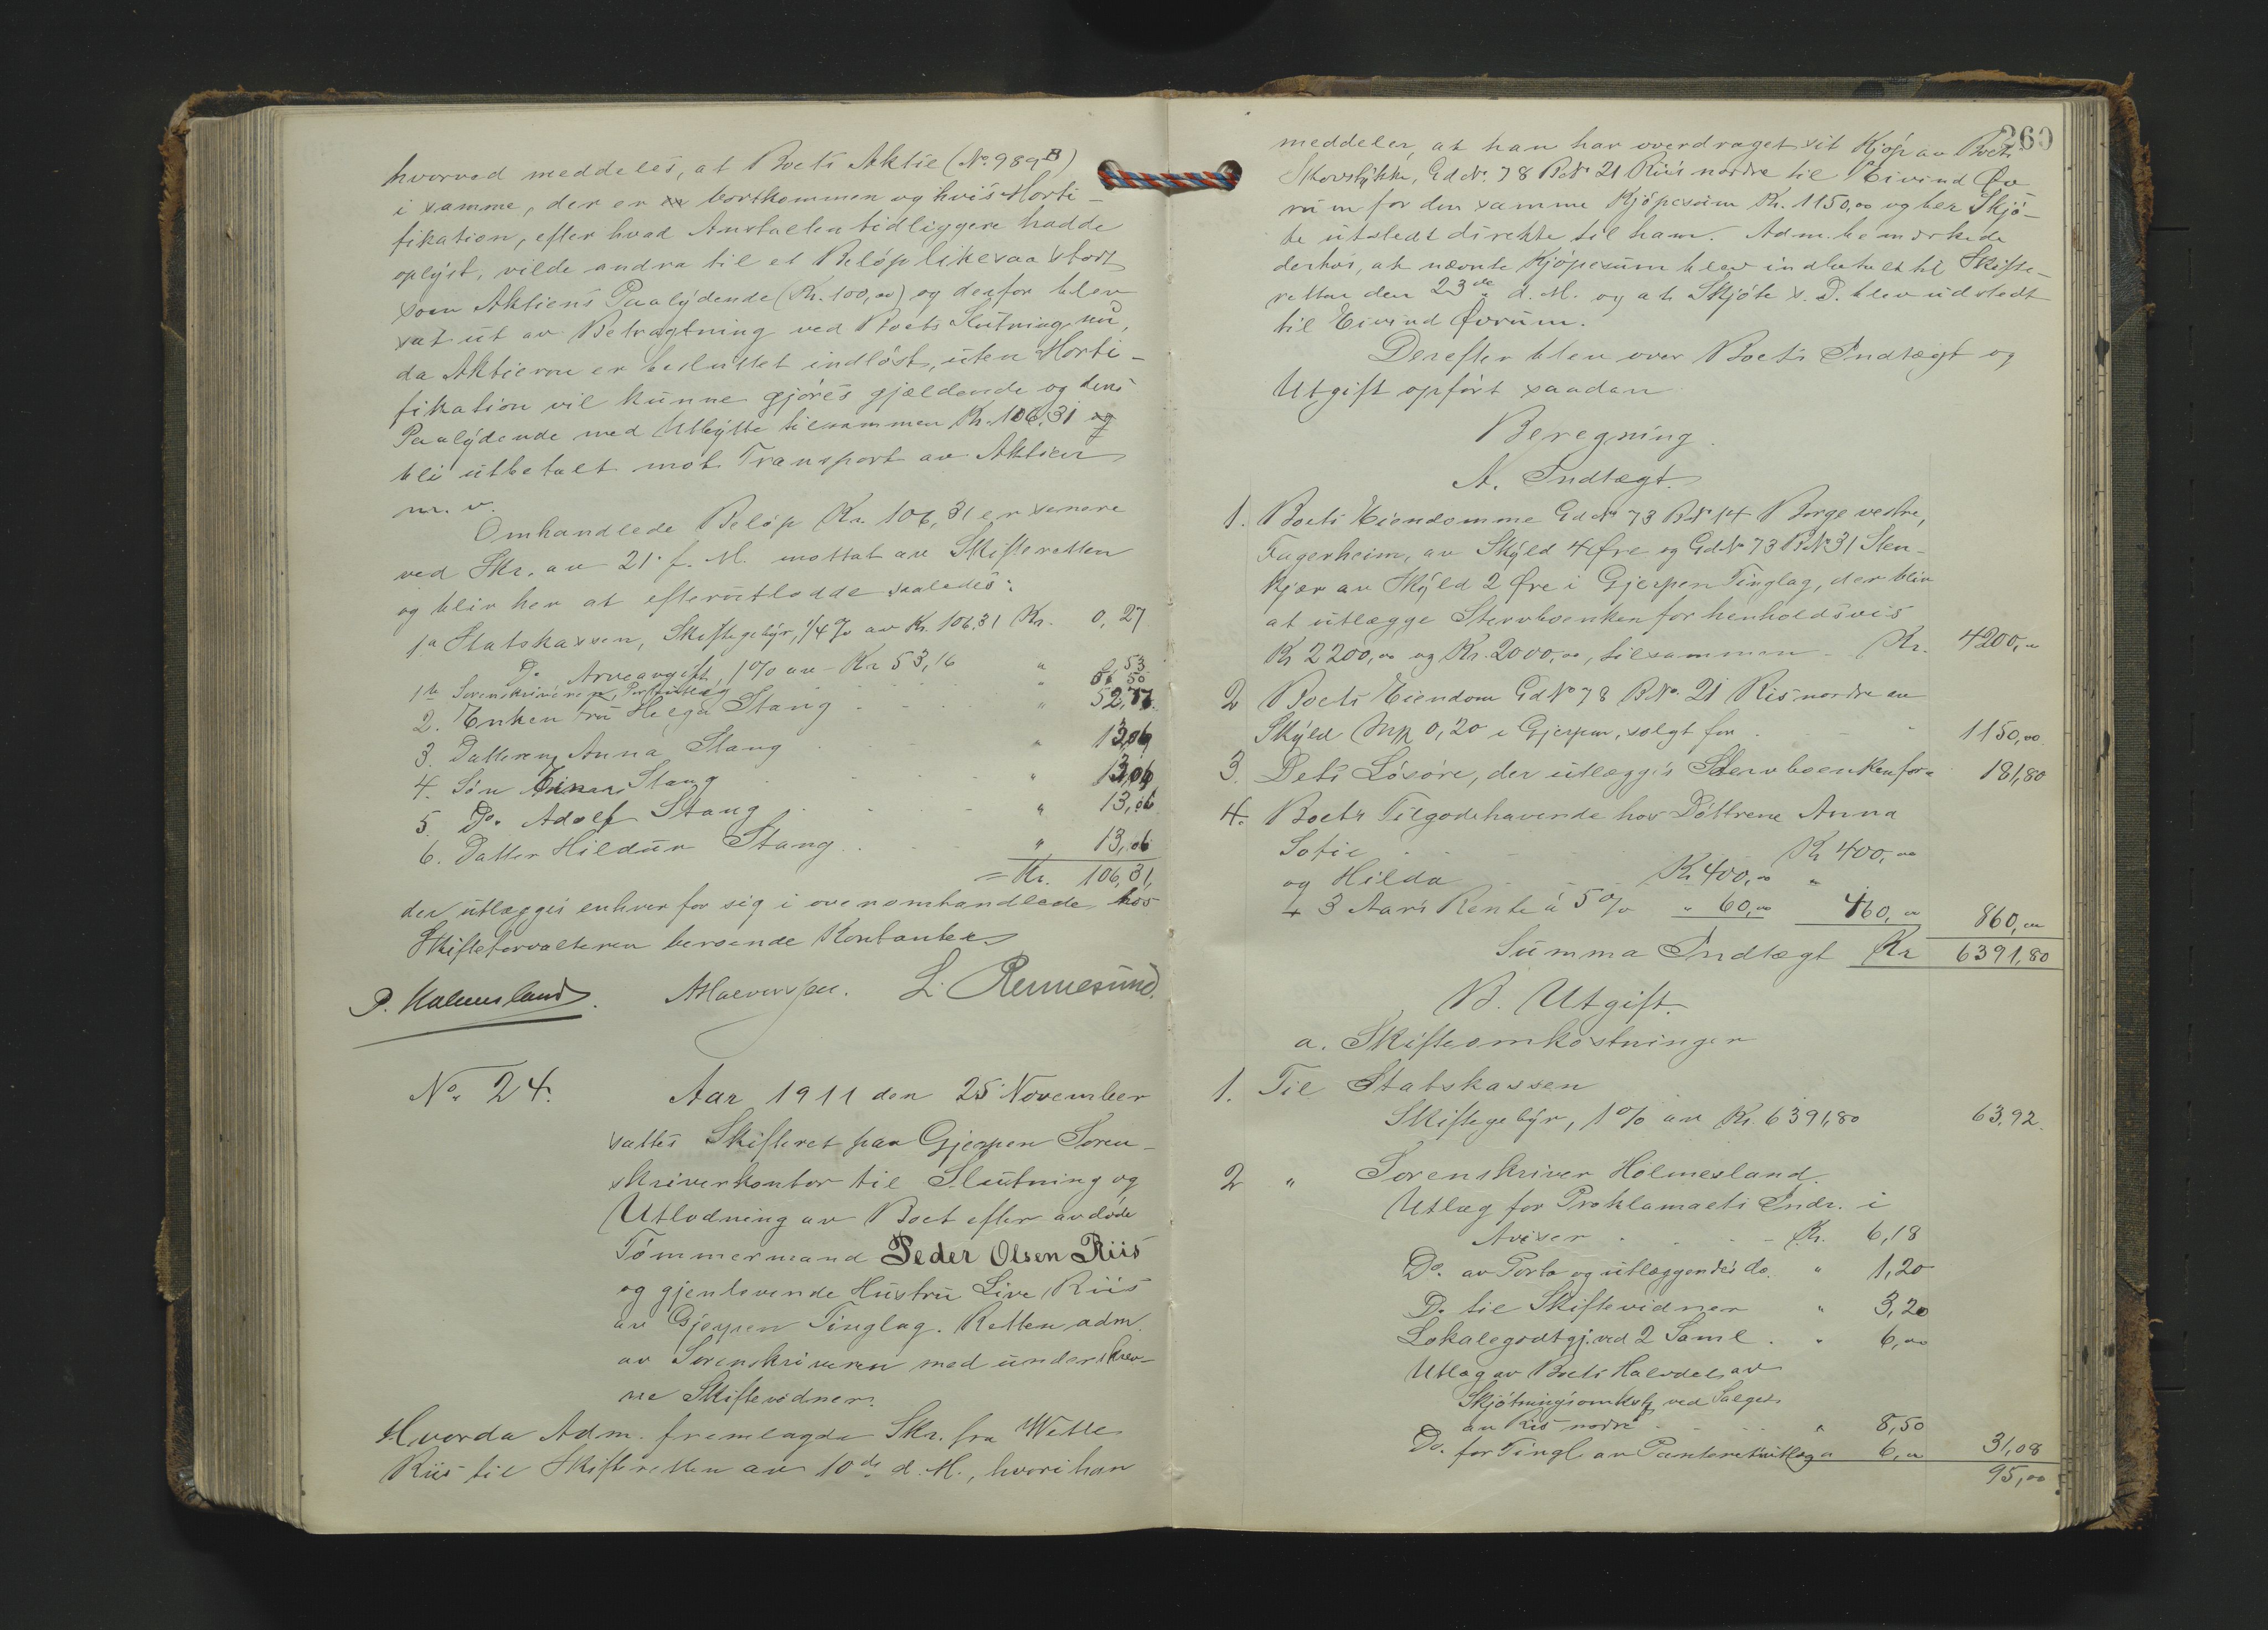 hvorved meddeles, at Boets Aktie (No. 989 B)
i samme, der er bortkommen og hvis Morti-
fikation, efter hvad Anstalten tidligere hadde
oplyst, vilde andra til et Beløp likesaa stort
som Aktiens Paalydende (Kr. 100,00) og derfor blev
sat ut av Betragtning ved Boets Slutning nu,
da Aktierne er besluttet indløst, uten Morti-
fikation vil kunne gjøres gjældende og dens
Paalydende med Utbytte tilsammen Kr. 106,31
bli utbetalt mot Transport av Aktien
m. v.
Omhandlede Beløp Kr. 106,31 er senere
ved Skr. av 21. f. M. mottat av Skifteretten
og blir her at efterutlodde saaledes:
1a Statskassen, Skiftegebyr, 1/4 % av Kr. 106,31 Kr. 0,27
Do Arveavgift, 1% av Kr 53,16 " 0,53
1b Sorenskriveren, Portoutlæg " 50
2. Enken Fru Helga Stang " 52,77
3. Datteren Anna Stang " 13,06
4. Søn Einar Stang " 13,06
5. Do. Adolf Stang " 13,06
6. Datter Hildur Stang " 13,06
= Kr. 106,31,
der utlægges enhver for sig i ovenomhandlede hos
Skifteforvalteren beroende Kontanter
P. Holmesland. AHalvorsen. L. Rennesund.
No. 24. Aar 1911 den 25 November
sattes Skifteret paa Gjerpen Soren-
skriverkontor til Slutning og
Utlodning av Boet efter avdøde
Tømmermand Peder Olsen Riis
og gjenlevende Hustru Live Riis
av Gjerpen Tinglag. Retten adm.
av Sorenskriveren med underskrev-
ne Skiftevidner.
Hvorda Adm. fremlagde Skr. fra Wetle
Riis til Skifteretten av 10de d. M., hvori han
260
meddeler, at han har overdraget sit Kjøp av Boets
Skovstykke, Gd No. 78 B No 21 Riis nordre til Eivind Øv
rum for den samme Kjøpesum Kr. 1150,00 og ber Skjø-
te utstedt direkte til ham. Adm. bemærkede
derhos, at nævnte Kjøpesum blev indbetalt til Skifte-
retten den 23de d. M. og at Skjøte s. D. blev udstedt
til Eivind Øvrum.
Derefter blev over Boets Indtægt og
Utgift opført saadan
Beregning.
A. Indtægt.
1. Boets Eiendomme Gd No 73 B No 14 Borge vestre,
Fagerheim, av Skyld 4 Øre og Gd No 73 B No 31 Sten-
kjær av Skyld 2 Øre i Gjerpen Tinglag, der blir
at utlægge Stervboenken for henholdsvis
Kr 2200,00 og Kr. 2000,00, tilsammen - Kr. 4200,00
2 Boets Eiendom Gd No 78 B No. 21 Ris nordre av
Skyld Mrk 0,20 i Gjerpen, solgt for 1150,00
3. Dets Løsøre, der utlægges Stervboenken for 181,80
4. Boets Tilgodehavende hos Døttrene Anna
Sofie Kr 400,00
og Hilda Kr 400,00 "
+ 3 Aars Rente à 5 % " 60,00 460,00 860,00
Summa Indtægt Kr 6391,80
B. Utgift.
a. Skifteomkostninger
1. Til Statskassen
Skiftegebyr, 1% av Kr. 6391,80 63,92.
2 " Sorenskriver Holmesland.
Utlæg for Proklamaets Indr. i
Aviser - Kr. 6,18
Do. av Porto og utlæggendes do. " 1,20
Do til Skiftevidner " 3,20
Lokalegodtgj. ved 2 Saml. " 6,00
Utlæg av Boets Halvdel av
Skjøtningsomkost. ved Salget
av Ris nordre " 8,50
Do. for Tingl. av Panteretsutlæg " 6,00 31,08
95,00